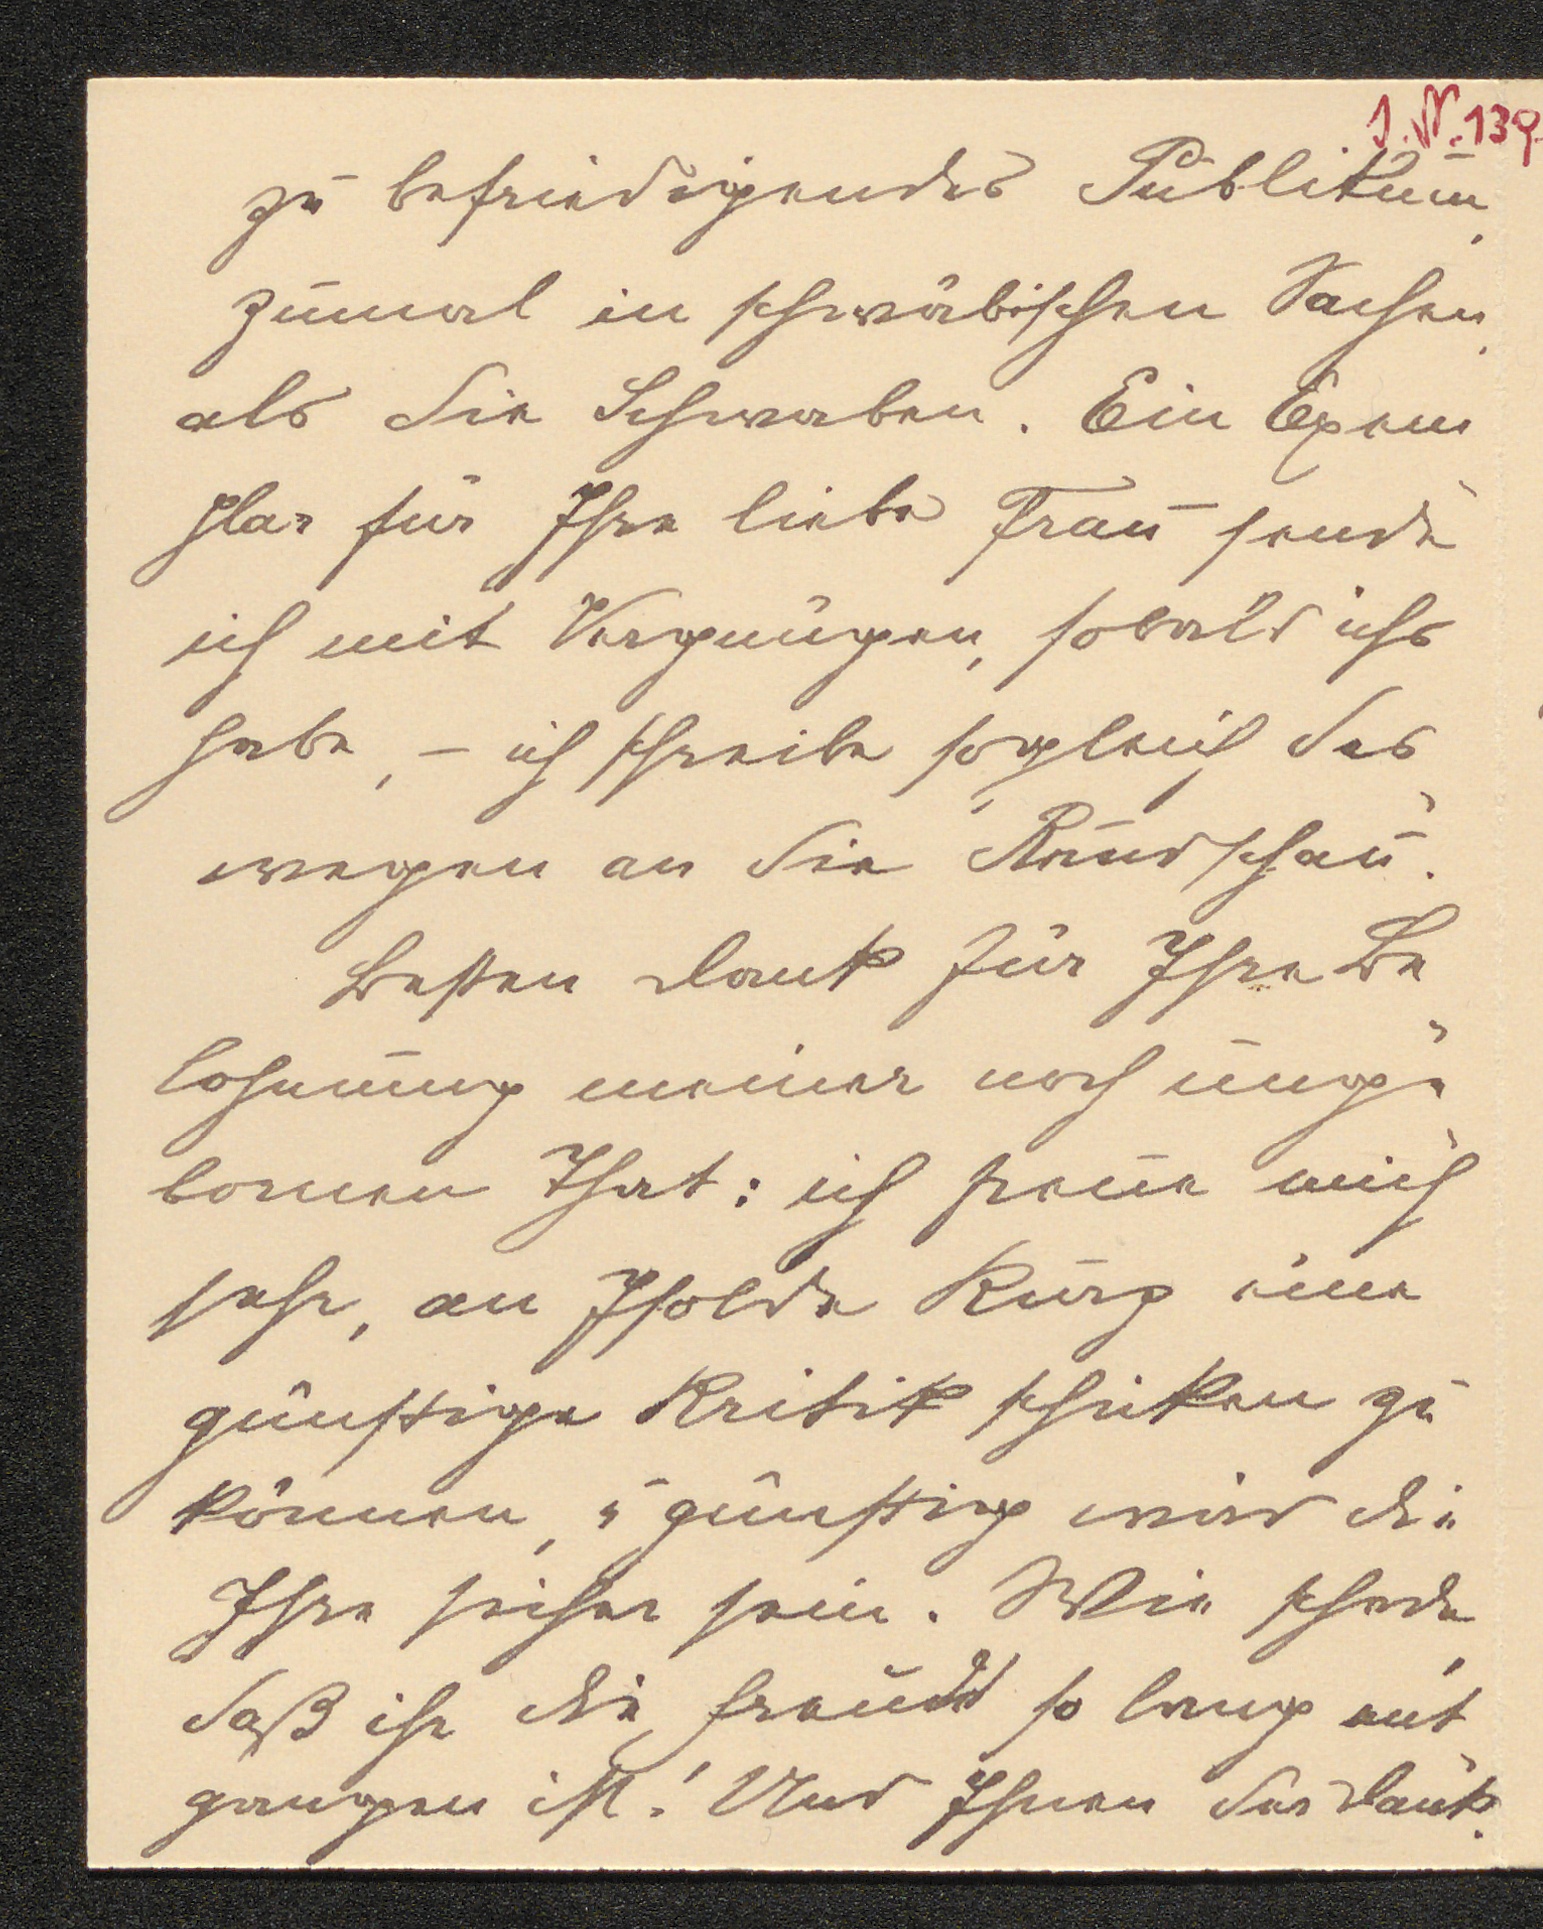 J. N. 139
zu befriedigendes Publikum,
zumal in schwäbischen Sachen,
als die Schwaben. Ein Exem
plar für Ihre liebe Frau sende
ich mit Vergnügen, sobald ichs
habe, – ich schreibe sogleich des
wegen an die Rundschau.
Besten Dank für Ihre Be
lohnung meiner noch unge
bornen That: ich freue mich
sehr, an Isolde Kurz eine
günstige Kritik schicken zu
können, u günstig wird die
Ihre sicher sein. Wie schade,
daß ihr die Freude so lang ent
gangen ist! Und Ihnen der Dank.